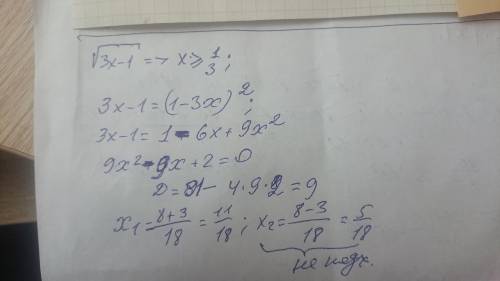 √3x-1 => x ≥ 1/3;
3x-1=(1-3x)²;
3x-1=1-6x+9x²
9x²-9x+2=0
D=81-4·9·2=9
x₁=8+3/18=11/18; x₂=8-3/18=5/18
не подх.